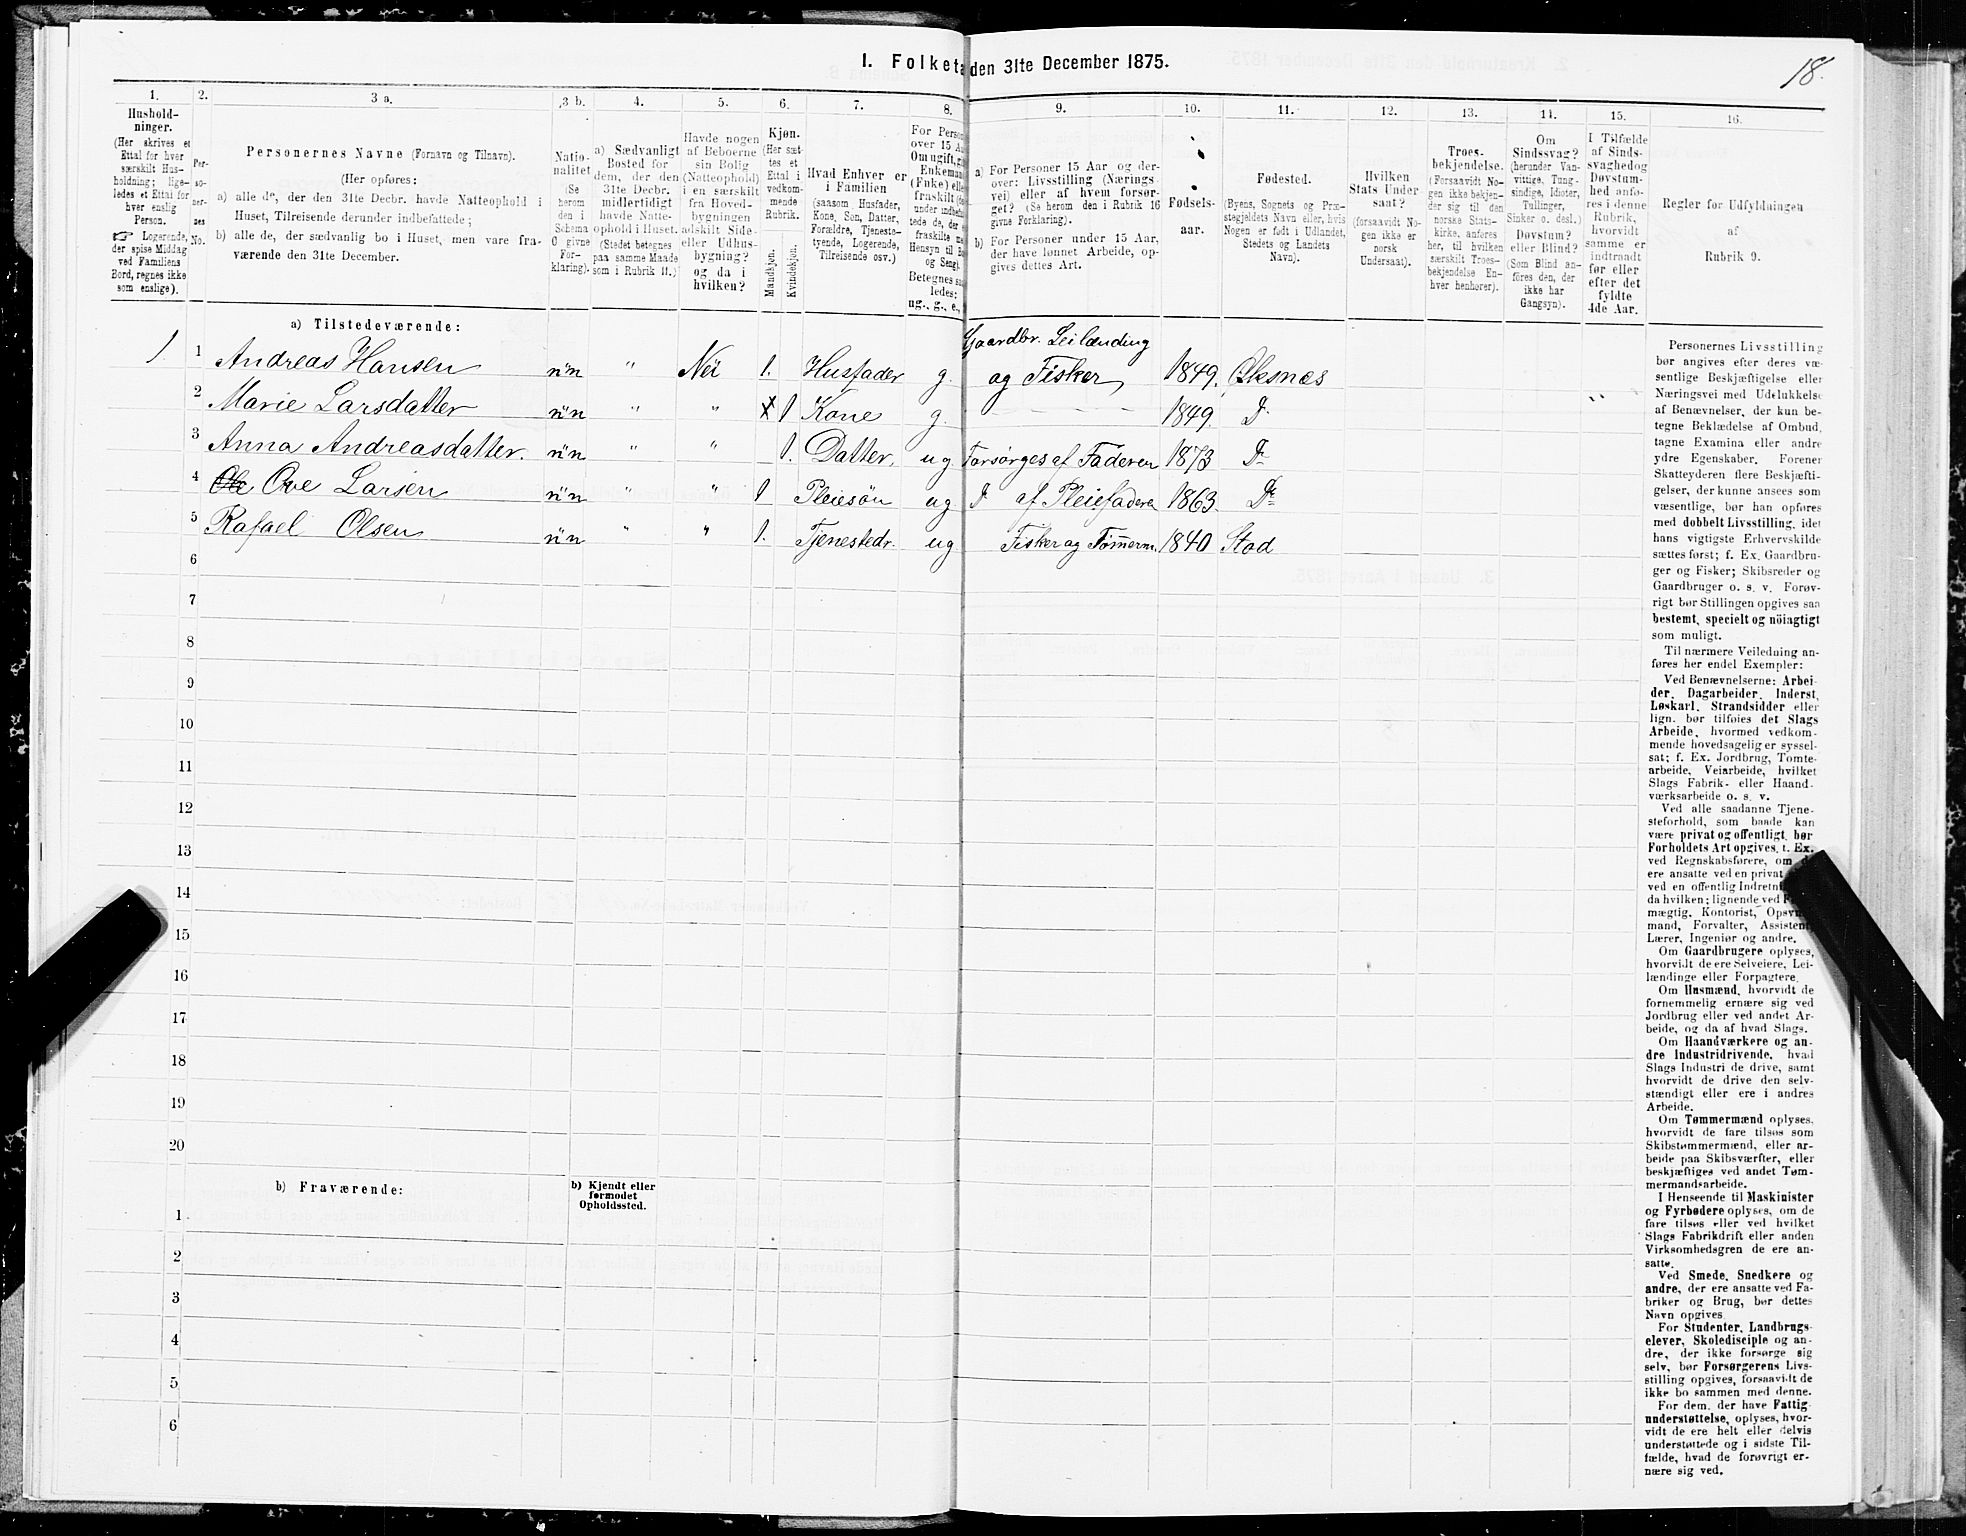 I. Folketæ den 31te December 1875.
18.
1. 2. 3 a. 3 b. 4. 5. 6. 7. 8. 9. 10. 11. 12. 13. 14. 15. 16.
Hushold-
ninger.
(Her skrives et
Ettal for hver
særskilt Hus-
holdning; lige-
ledes et Ettal for
hver enslig
Person.
☞ Logerende,
der spise Middag
ved Familiens
Bord, regnes ikke
som enslige).
Per-
so-
ner-
nes
No.
Personernes Navne (Fornavn og Tilnavn).
(Her opføres:
a) alle de, der den 31te Decbr. havde Natteophold i
Huset, Tilreisende derunder indbefattede;
b) alle de, der sædvanlig bo i Huset, men vare fra-
værende den 31te December.
Natio-
nalitet
(Se
herom
den i
Schema
O givne
For-
klaring).
a) Sædvanligt
Bosted for
dem, der den
31te Decbr.
midlertidigt
havde Natte-
ophold i Huset.
(Stedet betegnes
paa samme Maade
som i Rubrik 11.)
Havde nogen
af Beboerne
sin Bolig
(Natteophold)
i en særskilt
fra Hoved-
bygningen
adskilt Side-
eller Udhus-
bygning?
og da i
hvilken?
Kjøn.
(Her sæt-
tes et
Ettal i
vedkom-
mende
Rubrik.
Mandkjøn.
Kvindekjøn.
Hvad Enhver er
i Familien
(saasom Husfader,
Kone, Søn, Datter,
Forældre, Tjeneste-
tyende, Logerende,
Tilreisende osv.)
For Perso
over 15 A
Om ugift, g
Enkemar
(Enke) elle
fraskilt
under indbef
tede de, der
fraskilte m
Hensyn til Bo
og Seng).
Betegnes s
ledes:
ug., g., e.,
a) For Personer 15 Aar og der-
over: Livsstilling (Nærings-
vei) eller af hvem forsør-
get? (Se herom den i Rubrik 16
givne Forklaring).
b) For Personer under 15 Aar,
der have lønnet Arbeide, op-
gives dettes Art.
Fødsels-
aar.
Fødested.
(Byens, Sognets og Præ-
stegjeldets Navn eller, hvis
Nogen er født i Udlandet,
Stedets og Landets
Navn).
Hvilken
Stats Under-
saat?
(forsaavidt No-
gen ikke er
norsk
Undersaat).
Troes-
bekjendelse.
(Forsaavidt No-
gen ikke bekjen-
der sig til den
norske Stats-
kirke, anføres
her, til hvilken
særskilt Troes-
bekjendelse En-
hver henhører).
Om
Sindssvag?
(herunder Van-
vittige, Tung-
sindige, Idioter,
Tullinger,
Sinker o. desl.)
Døvstum?
eller Blind?
(Som Blind an-
føres den, der
ikke har
Gangsyn).
I Tilfælde
af Sinds-
svaghed og
Døvstum-
hed anfø-
res i denne
Rubrik,
hvorvidt
samme er
indtraadt
før eller
efter det
fyldte
4de Aar.
Regler for Udfyldningen
af
Rubrik 9.
a) Tilstedeværende:
Gaardbr. Leilænding
1. 1 Andreas Hansen n'n " Nei 1. Husfader g. og Fisker, 1849. Øksnæs
2 Marie Larsdatter n'n " " 1 Kone g. — — — 1849. Do
3 Anna Andreasdatter. n'n " " 1. Datter, ug Forsørges af Faderen 1873 Do
4 Ole Ove Larsen n'n " " 1 Pleiesøn ug D af Pleiefaderen 1863. Do
5 Rafael Olsen n'n " " 1. Tjenestedr. ug Fisker og Tømmerm. 1840 Stod
6
7
8
9
10
11
12
13
14
15
16
17
18
19
20
b) Fraværende:
b) Kjendt eller
formodet
Opholdssted.
1
2
3
4
5
6
Personernes Livsstilling
bør angives efter deres væ-
sentlige Beskjæftigelse eller
Næringsvei med Udelukkelse
af Benævnelser, der kun be-
tegne Beklædelse af Ombud,
tagne Examina eller andre
ydre Egenskaber. Forener
Skatteyderen flere Beskjæfti-
gelser, der kunne ansees som
væsentlige, bør han opføres
med dobbelt Livsstilling, idet
hans vigtigste Erhvervskilde
sættes først; f. Ex. Gaardbru-
ger og Fisker; Skibsreder og
Gaardbruger o. s. v. Forøv-
rigt bør Stillingen opgives saa
bestemt, specielt og nöiagtigt
som muligt.
Til nærmere Veiledning an-
føres her endel Exempler:
Ved Benævnelserne: Arbei-
der, Dagarbeider, Inderst,
Løskarl, Strandsidder eller
lign. bør tilføies det Slags
Arbeide, hvormed vedkom-
mende hovedsagelig er syssel-
sat; f. Ex. Jordbrug, Tomte-
arbeide, Veiarbeide, hvilket
Slags Fabrik- eller Haand-
værksarbeide o. s. v.
Ved alle saadanne Tjene-
steforhold, som baade kan
være privat og offentligt, bør
Forholdets Art opgives, t. Ex.
ved Regnskabsførere, om d
ere ansatte ved en privat
ved en offentlig Indretn
da hvilken; lignende ved F
mægtig, Kontorist, Opsyn
mand, Forvalter, Assistent
Lærer, Ingeniør og andre.
Om Gaardbrugere oplyses,
hvorvidt de ere Selveiere, Lei-
lændinge eller Forpagtere.
Om Husmænd, hvorvidt de
fornemmelig ernære sig ved
Jordbrug eller ved andet Ar-
beide, og da af hvad Slags.
Om Haandværkere og an-
dre Industridrivende, hvad
Slags Industri de drive, samt
hvorvidt de drive den selv-
stændigt eller ere i andres
Arbeide.
Om Tømmermænd oplyses,
hvorvidt de fare tilsøs som
Skibstømmermænd, eller ar-
beide paa Skibsværfter, eller
beskjæftiges ved andet Tøm-
mermandsarbeide.
I Henseende til Maskinister
og Fyrbødere oplyses, om de
fare tilsøs eller ved hvilket
Slags Fabrikdrift eller anden
Virksomhedsgren de ere an-
satte.
Ved Smede, Snedkere og
andre, der ere ansatte ved Fa-
briker og Brug, bør dettes
Navn opgives
For Studenter, Landbrugs-
elever, Skoledisciple og an-
dre, der ikke forsørge sig
selv, bør Forsørgerens Livs-
stilling opgives, forsaavidt de
ikke bo sammen med denne.
For dem, der have Fattig-
understøttelse, oplyses, hvor-
vidt de ere helt eller delvis
understøttede og i sidste Til-
fælde, hvad de forøvrigt er-
nære sig ved.